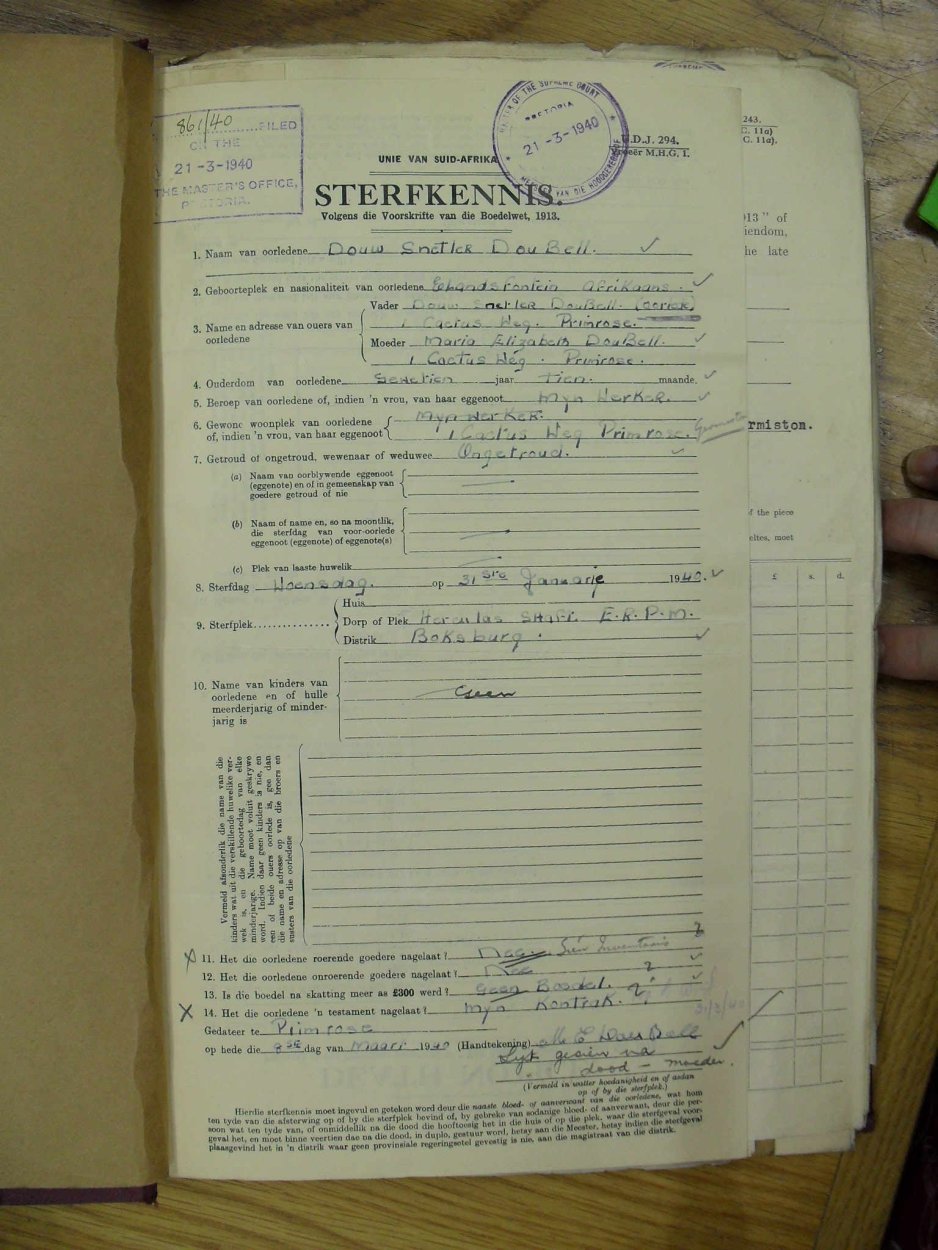 861/40 FILED
ON THE
21-3-1940
THE MASTER'S OFFICE,
PRETORIA.
MASTER OF THE SUPREME COURT
PRETORIA
21-3-1940
MEESTER VAN DIE HOOGGEREGSHOF
U.D.J. 294.
Vroeër M.H.G. 1.
243.
C. 11a)
C. 11a).
UNIE VAN SUID-AFRIKA
STERFKENNIS.
Volgens die Voorskrifte van die Boedelwet, 1913.
1. Naam van oorledene Douw Snetler DouBell.
2. Geboorteplek en nasionaliteit van oorledene Elandsfontein Afrikaans.
3. Name en adresse van ouers van oorledene
Vader Douw Snetler DouBell.
1 Cactus Weg. Primrose.
Moeder Maria Elizabeth DouBell.
1 Cactus Weg. Primrose.
4. Ouderdom van oorledene Sewetien jaar Tien. maande.
5. Beroep van oorledene of, indien 'n vrou, van haar eggenoot Myn Werker.
6. Gewone woonplek van oorledene of, indien 'n vrou, van haar eggenoot
Myn Werker.
1 Cactus Weg Primrose. Germiston
7. Getroud of ongetroud, wewenaar of weduwee Ongetroud.
(a) Naam van oorblywende eggenoot
(eggenote) en of in gemeenskap van
goedere getroud of nie
(b) Naam of name en, so na moontlik,
die sterfdag van voor-oorlede
eggenoot (eggenote) of eggenote(s)
(c) Plek van laaste huwelik
8. Sterfdag Woensdag. op 31ste Januarie 1940.
9. Sterfplek
Huis
Dorp of Plek Hercules Shaft E.R.P.M.
Distrik Boksburg.
10. Name van kinders van
oorledene en of hulle
meerderjarig of minder-
jarig is
Geen
Vermeld afsonderlik die name van die
kinders wat uit die verskillende huwelike ver-
wek is, en die geboortedag van elke
minderjarige. Name moet voluit geskrywe
word. Indien daar geen kinders is nie, en
een of beide ouers oorlede is, gee dan
die name en adresse op van die broers en
susters van die oorledene
X 11. Het die oorledene roerende goedere nagelaat? Nee Sien Inventaris
12. Het die oorledene onroerende goedere nagelaat? Nee
13. Is die boedel na skatting meer as £300 werd? Geen Boedel.
X 14. Het die oorledene 'n testament nagelaat? Myn Kontrak.
Gedateer te Primrose
op hede die 8ste dag van Maart 1940 (Handtekening) M E DouBell
Lyk gesien na
dood - moeder.
(Vermeld in watter hoedanigheid en of aldan
op of by die sterfplek.)
Hierdie sterfkennis moet ingevul en geteken word deur die naaste bloed- of aanverwant van die oorledene, wat hom
ten tyde van die afsterwing op of by die sterfplek bevind of, by gebreke van sodanige bloed- of aanverwant, deur die per-
soon wat ten tyde van, of onmiddellik na die dood die hooftoesig het in die huis of op die plek, waar die sterfgeval voor-
geval het, en moet binne veertien dae na die dood, in duplo, gestuur word, hetsy aan die Meester, hetsy indien die sterfgeval
plaasgevind het in 'n distrik waar geen provinsiale regeringsetel gevestig is nie, aan die magistraat van die distrik.
913" of
iendom,
he late
rmiston.
of the piece
eltes, moet
£ s. d.